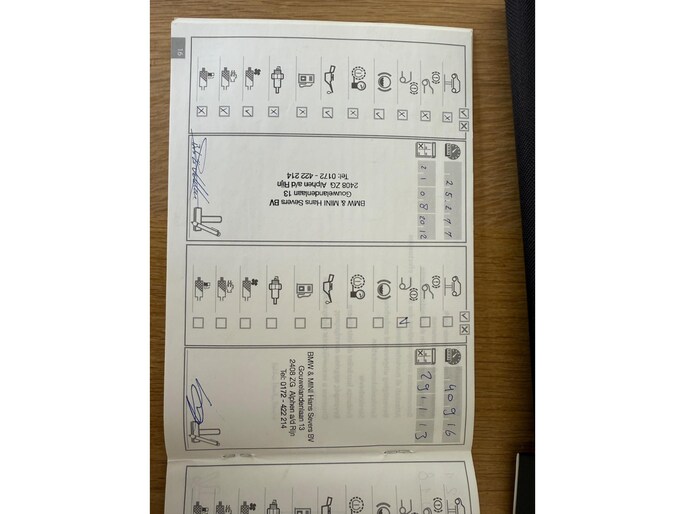 16
21 08 2012
BMW & MINI Hans Severs BV
Gouwelandenlaan 13
2408 ZG Alphen a/d Rijn
Tel: 0172 - 422 214
40916
29 11 13
BMW & MINI Hans Severs BV
Gouwelandenlaan 13
2408 ZG Alphen a/d Rijn
Tel: 0172 - 422 214